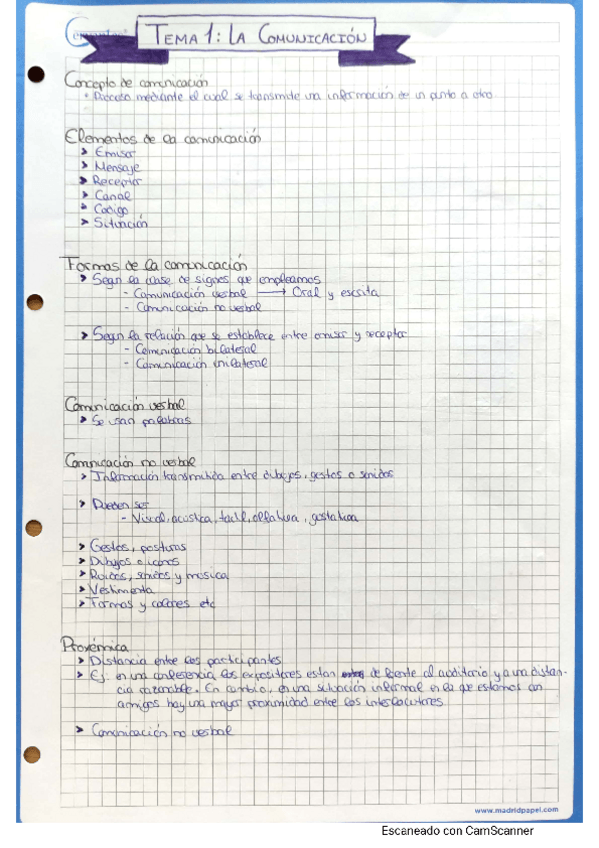 TEMA 1: LA COMUNICACIÓN
Concepto de comunicación
• Proceso mediante el cual se transmite una información de un punto a otro
Elementos de la comunicación
> Emisor
> Mensaje
> Receptor
> Canal
> Codigo
> Situación
Formas de la comunicación
> Según la clase de signos que empleamos
- Comunicación verbal → Oral y escrita
- Comunicación no verbal
> Según la relación que se establece entre emisor y receptor
- Comunicación bilateral
- Comunicación unilateral
Comunicación verbal
> Se usan palabras
Comunicación no verbal
> Información transmitida entre dibujos, gestos o sonidos
> Pueden ser
- Visual, acústica, tactil, olfativa, gustativa
> Gestos, posturas
> Dibujos o iconos
> Ruidos, sonidos y musica
> Vestimenta
> Formas y colores etc
Proxémica
> Distancia entre los participantes
> Ej: en una conferencia los expositores estan de frente al auditorio y a una distan-
cia razonable. En cambio, en una situación informal en la que estamos con
amigos hay una mayor proximidad entre los interlocutores
> Comunicación no verbal
www.madridpapel.com
Escaneado con CamScanner